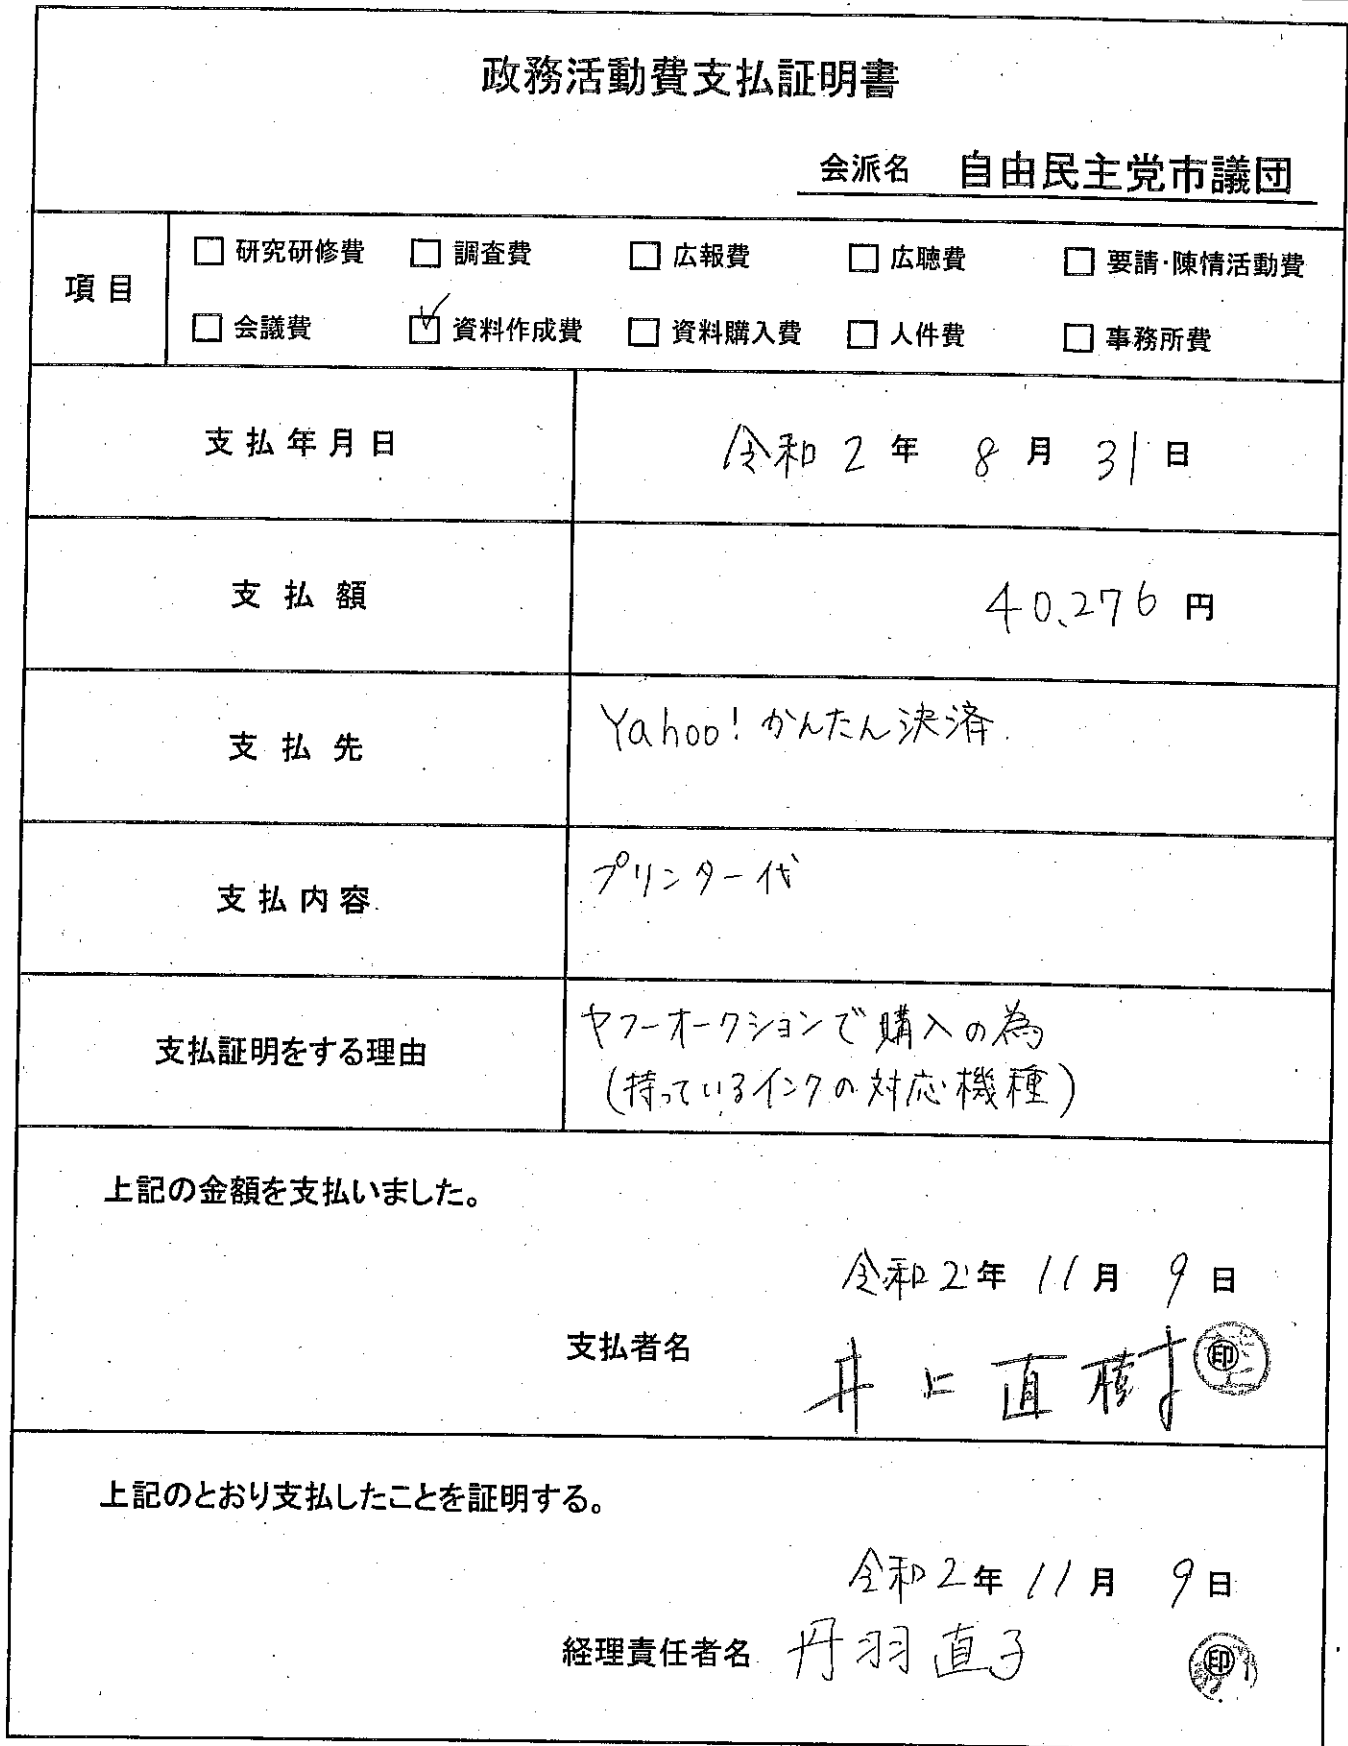 政務活動費支払証明書
会派名 自由民主党市議団
項目
□ 研究研修費 □ 調査費 □ 広報費 □ 広聴費 □ 要請・陳情活動費
□ 会議費 ☑ 資料作成費 □ 資料購入費 □ 人件費 □ 事務所費
支払年月日 令和2年 8月 31日
支払額 40,276円
支払先 Yahoo!かんたん決済
支払内容 プリンター代
支払証明をする理由 ヤフーオークションで購入の為
(持っているインクの対応機種)
上記の金額を支払いました。
令和2年 11月 9日
支払者名 井上直樹 印
上記のとおり支払したことを証明する。
令和2年 11月 9日
経理責任者名 丹羽直子 印